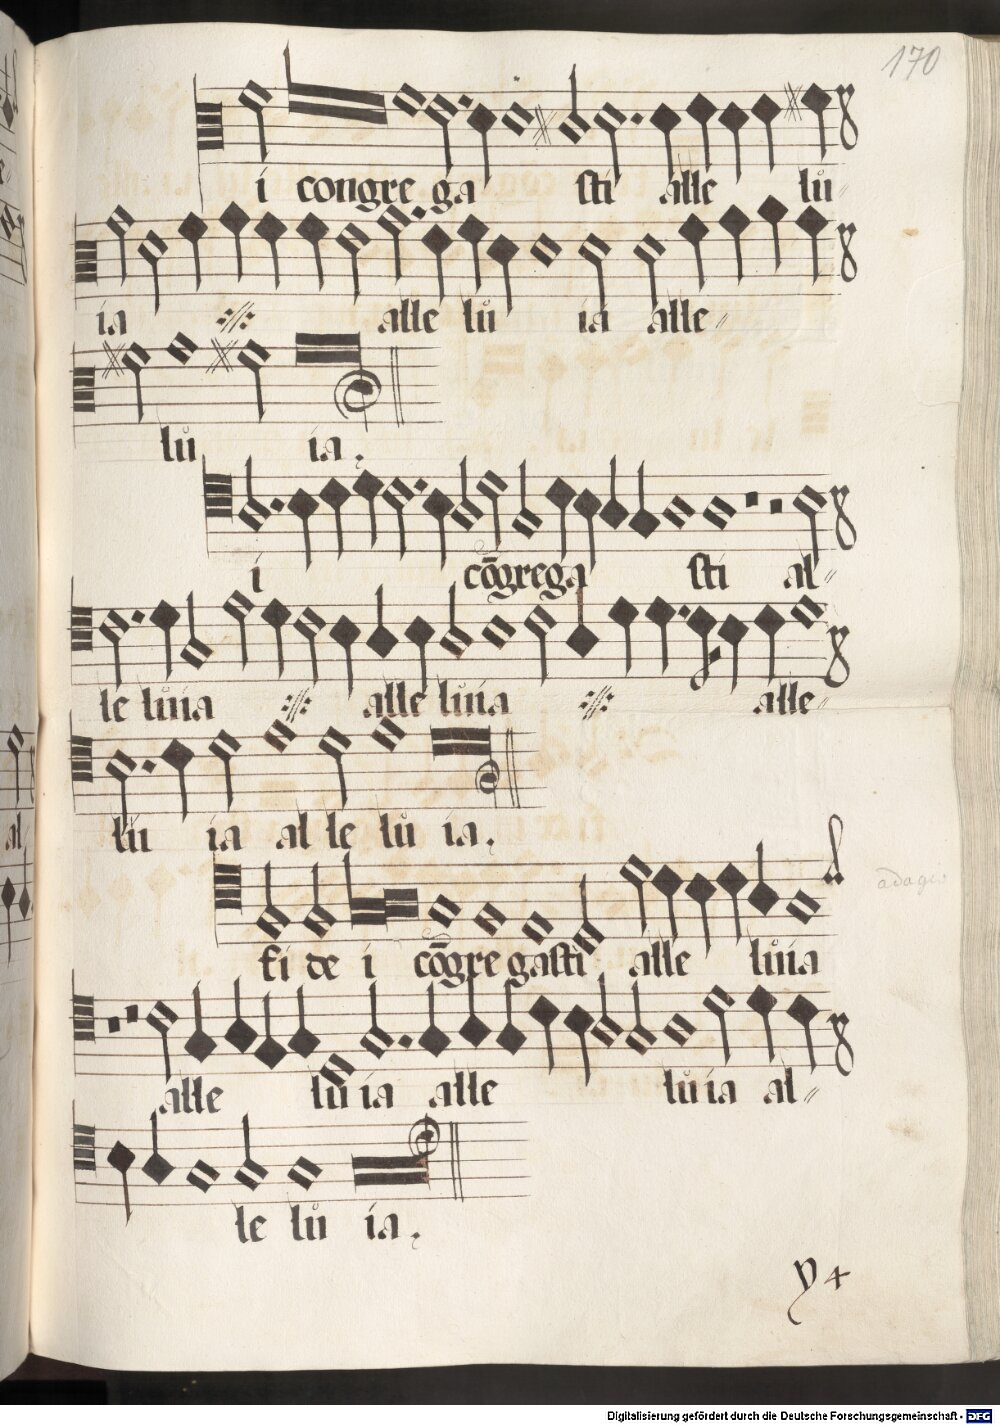 170
i congre ga sti alle lů
ia alle lů ia alle
lů ia.
i cōgrega sti al
le luia alle luia alle
lu ia al le lů ia.
fi de i cōgre gasti alle lůia
alle lu ia alle lůia al
le lů ia.
adagio
y 4
Digitalisierung gefördert durch die Deutsche Forschungsgemeinschaft - DFG